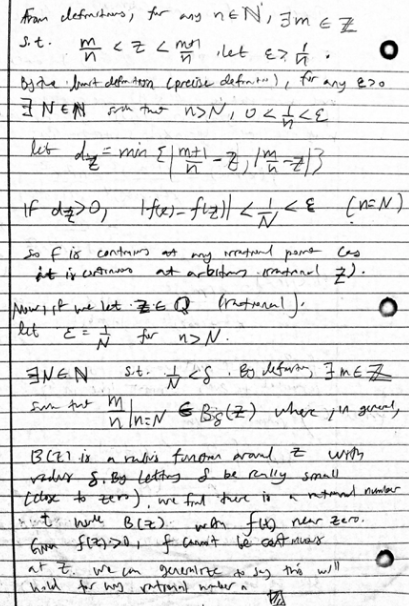 From definitions, for any n∈ℕ, ∃m∈ℤ
s.t. m/n < z < m+1/n, let ε > 1/n.
By the limit definition (precise definition), for any ε>0
∃N∈ℕ such that n>N, 0<1/n<ε
let d_z = min {|m+1/n - z|, |m/n - z|}
If d_z>0, |f(x)-f(z)| < 1/N < ε (n=N)
So f is continuous at any irrational point (as
it is continuous at arbitrary irrational z).
Now, if we let z∈ℚ (rational).
let ε = 1/N for n>N.
∃N∈ℕ s.t. 1/N < δ. By definition, ∃m∈ℤ
such that m/n |n=N ∈ B_δ(z) where, in general,
B(z) is a radius function around z with
radius δ. By letting δ be really small
(close to zero), we find there is a rational number
t B(z) with f(t) near zero.
Given f(z)>0, f cannot be continuous
at z. We can generalize to say this will
hold for any rational number